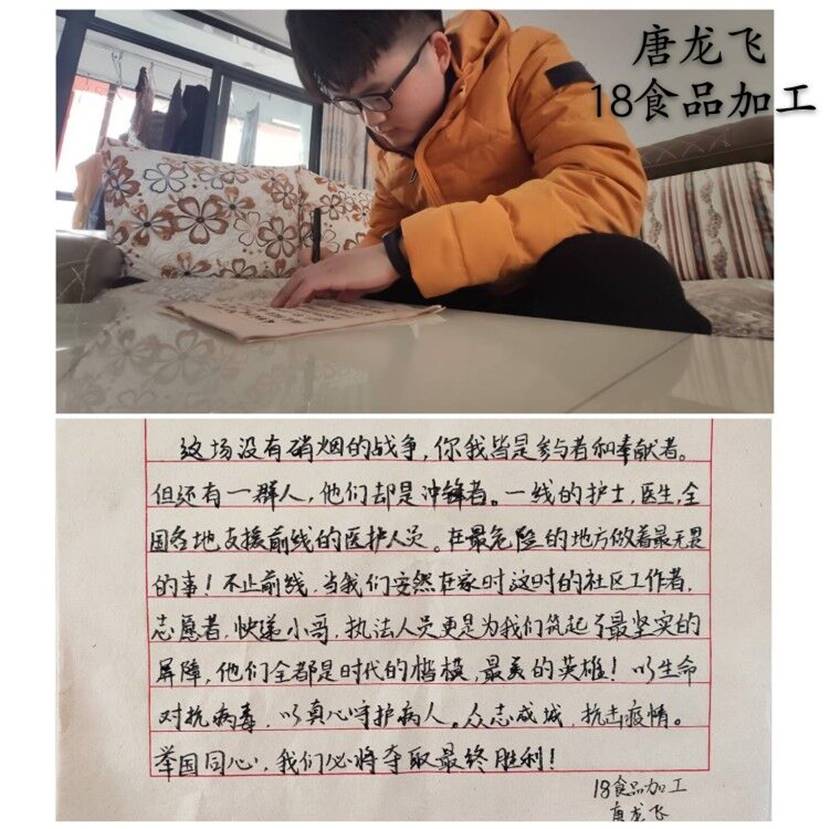 唐龙飞
18食品加工
这场没有硝烟的战争，你我皆是参与者和奉献者。
但还有一群人，他们却是冲锋者。一线的护士，医生，全
国各地支援前线的医护人员。在最危险的地方做着最无畏
的事！不止前线，当我们安然在家时这时的社区工作者，
志愿者，快递小哥，执法人员更是为我们筑起了最坚实的
屏障，他们全都是时代的楷模，最美的英雄！以生命
对抗病毒，以真心守护病人。众志成城，抗击疫情。
举国同心，我们必将夺取最终胜利！
18食品加工
唐龙飞